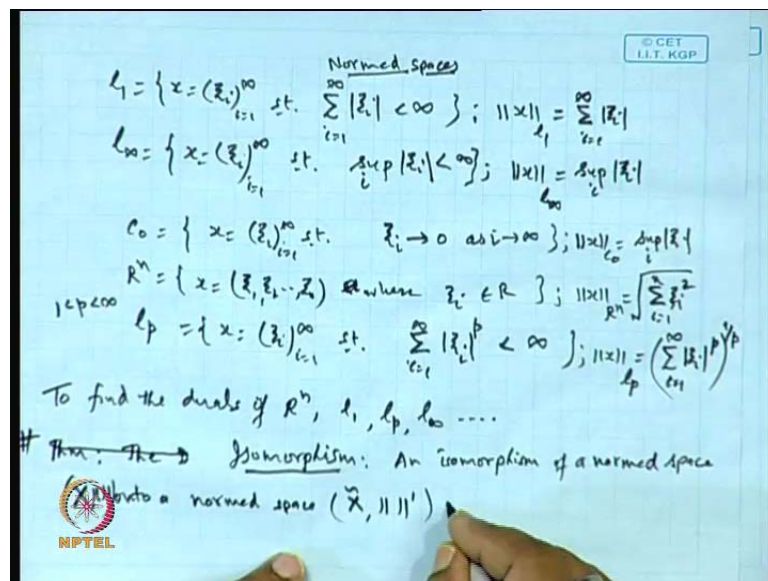 © CET
I.I.T. KGP
Normed spaces
l₁ = { x = (ξᵢ)ᵢ₌₁^∞ st. ∑ᵢ₌₁^∞ |ξᵢ| < ∞ } ; ||x||_l₁ = ∑ᵢ₌₁^∞ |ξᵢ|
l∞ = { x = (ξᵢ)ᵢ₌₁^∞ st. supᵢ |ξᵢ| < ∞ } ; ||x||_l∞ = supᵢ |ξᵢ|
C₀ = { x = (ξᵢ)ᵢ₌₁^∞ st. ξᵢ → 0 as i → ∞ } ; ||x||_C₀ = supᵢ |ξᵢ|
Rⁿ = { x = (ξ₁, ξ₂, ..., ξₙ) where ξᵢ ∈ R } ; ||x||_Rⁿ = √(∑ᵢ₌₁ⁿ ξᵢ²)
1<p<∞
l_p = { x = (ξᵢ)ᵢ₌₁^∞ st. ∑ᵢ₌₁^∞ |ξᵢ|^p < ∞ } ; ||x||_l_p = (∑ᵢ₌₁^∞ |ξᵢ|^p)^(1/p)
To find the duals of Rⁿ, l₁, l_p, l∞ ....
# Thm: The Isomorphism: An isomorphism of a normed space
onto a normed space (X̃, || ||')
NPTEL